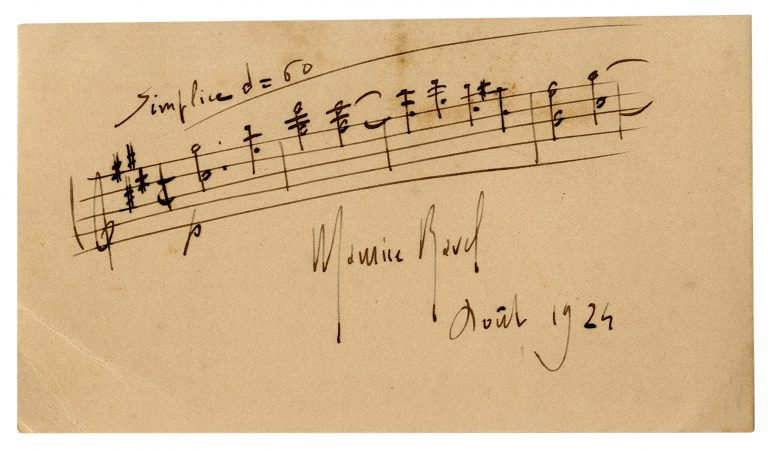 Simplice d = 60
p
Maurice Ravel
Août 1924